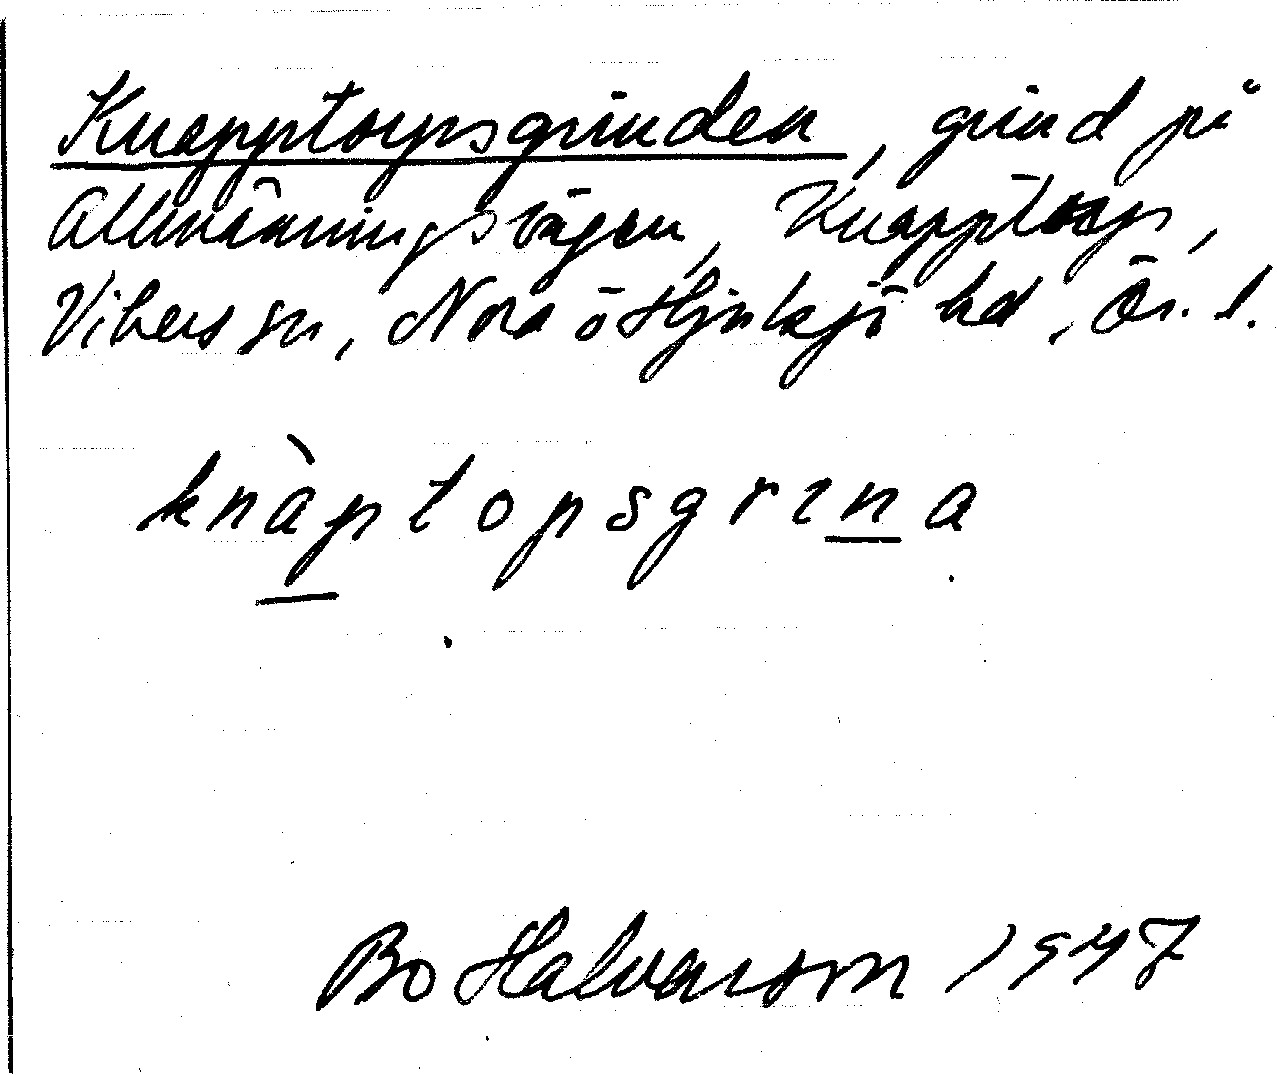 Knapptorpsgrinden, grind på
Allmänningsvägen, Knapptorp,
Vikers sn, Nora ö Hjulsjö hd, Ör. l.
knàptopsgrına
Bo Halvarson 1947